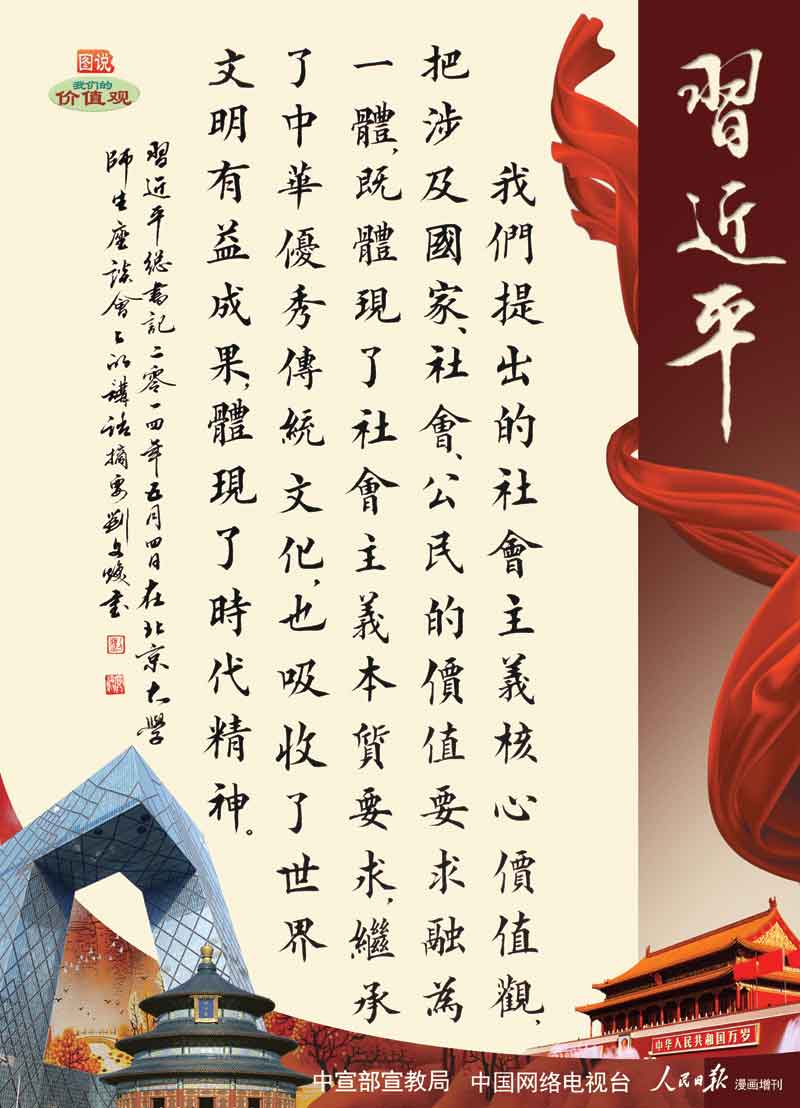 習近平
我們提出的社會主義核心價值觀，
把涉及國家、社會、公民的價值要求融為
一體，既體現了社會主義本質要求，繼承
了中華優秀傳統文化，也吸收了世界
文明有益成果，體現了時代精神。
習近平總書記二零一四年五月四日在北京大學
師生座談會上的講話摘要劉文煥書
图说
我们的
价值观
中华人民共和国万岁
中宣部宣教局 中国网络电视台 人民日報 漫画增刊